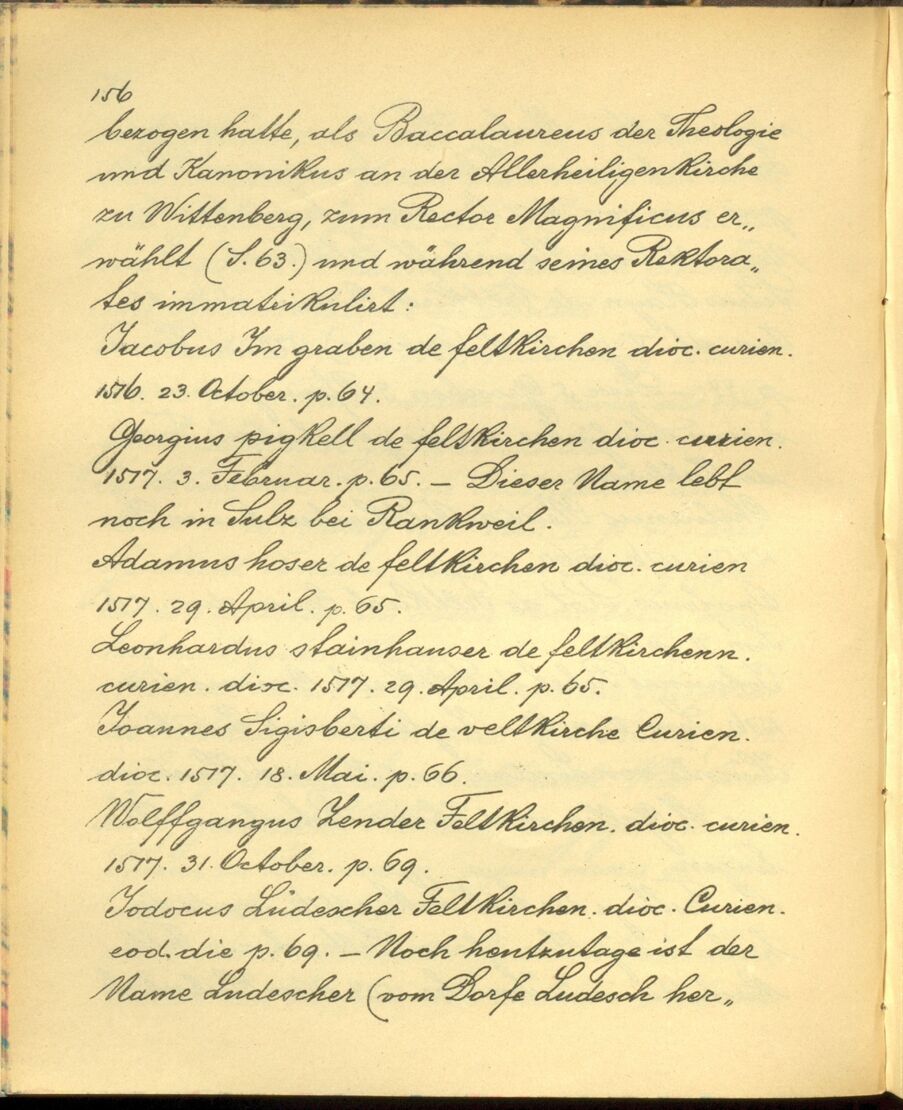 156
bezogen hatte, als Baccalaureus der Theologie
und Kanonikus an der Allerheiligenkirche
zu Wittenberg, zum Rector Magnificus er„
wählt (S. 63.) und während seines Rektora„
tes immatrikulirt:
Jacobus Im graben de feltkirchen dioc. curien.
1516. 23. October. p. 64.
Georgius pigkell de feltkirchen dioc. curien.
1517. 3. Februar. p. 65. – Dieser Name lebt
noch in Sulz bei Rankweil.
Adamus hoser de feltkirchen dioc. curien
1517. 29. April. p. 65.
Leonhardus stainhauser de feltkirchenn.
curien. dioc. 1517. 29. April. p. 65.
Joannes Sigisberti de veltkirche Curien.
dioc. 1517. 18. Mai. p. 66.
Wolffgangus Zender Feltkirchen. dioc. curien.
1517. 31. October. p. 69.
Jodocus Lüdescher Feltkirchen. dioc. Curien.
eod. die p. 69. – Noch heutzutage ist der
Name Ludescher (vom Dorfe Ludesch her„